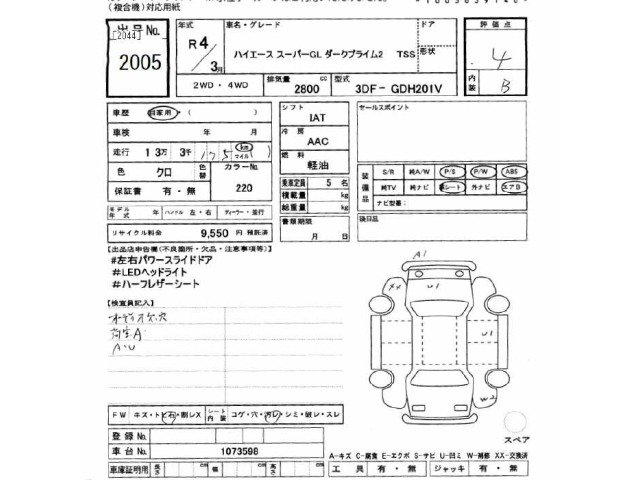 (複合機)対応用紙
出品番号 No. [2044] 2005
年式 R4 / 3月
車名・グレード ハイエース スーパーGL ダークプライム2 TSS
ドア 形状
評価点 4
内装 B
2WD ・ 4WD
排気量 2800 cc
型式 3DF- GDH201V
車歴 自家用・( )
車検 年 月
走行 13万 3千 175 km マイル ( )
色 クロ 色替 カラーNo. 220
保証書 有・無
モデル年式 年 ハンドル 左・右 ディーラー・並行
リサイクル料金 9,550 円 預託済
シフト IAT
冷房 AAC
燃料 軽油
乗車定員 5 名
積載量 kg
総重量 kg
書類期限 月 日
セールスポイント
装備品 S/R 純A/W P/S P/W ABS
純TV 純ナビ 革シート 外ナビ エアB
ナビ型番:
後日品
【出品店申告欄(不良箇所・欠品・注意事項等)】
#左右パワースライドドア
#LEDヘッドライト
#ハーフレザーシート
【検査員記入】
オーディオ欠、穴
荷室A
A・U
A1
XX
U1
U1
W2
スペア
FW キズ・トビ石・割レX
シート内装 コゲ・穴・汚レ・シミ・破レ・スレ
登録No.
車台No. 1073598
A-キズ C-腐食 E-エクボ S-サビ U-凹ミ W-補修 XX-交換済
車庫証明用 長さ cm 幅 cm 高さ cm
工具 有・無 ジャッキ 有・無